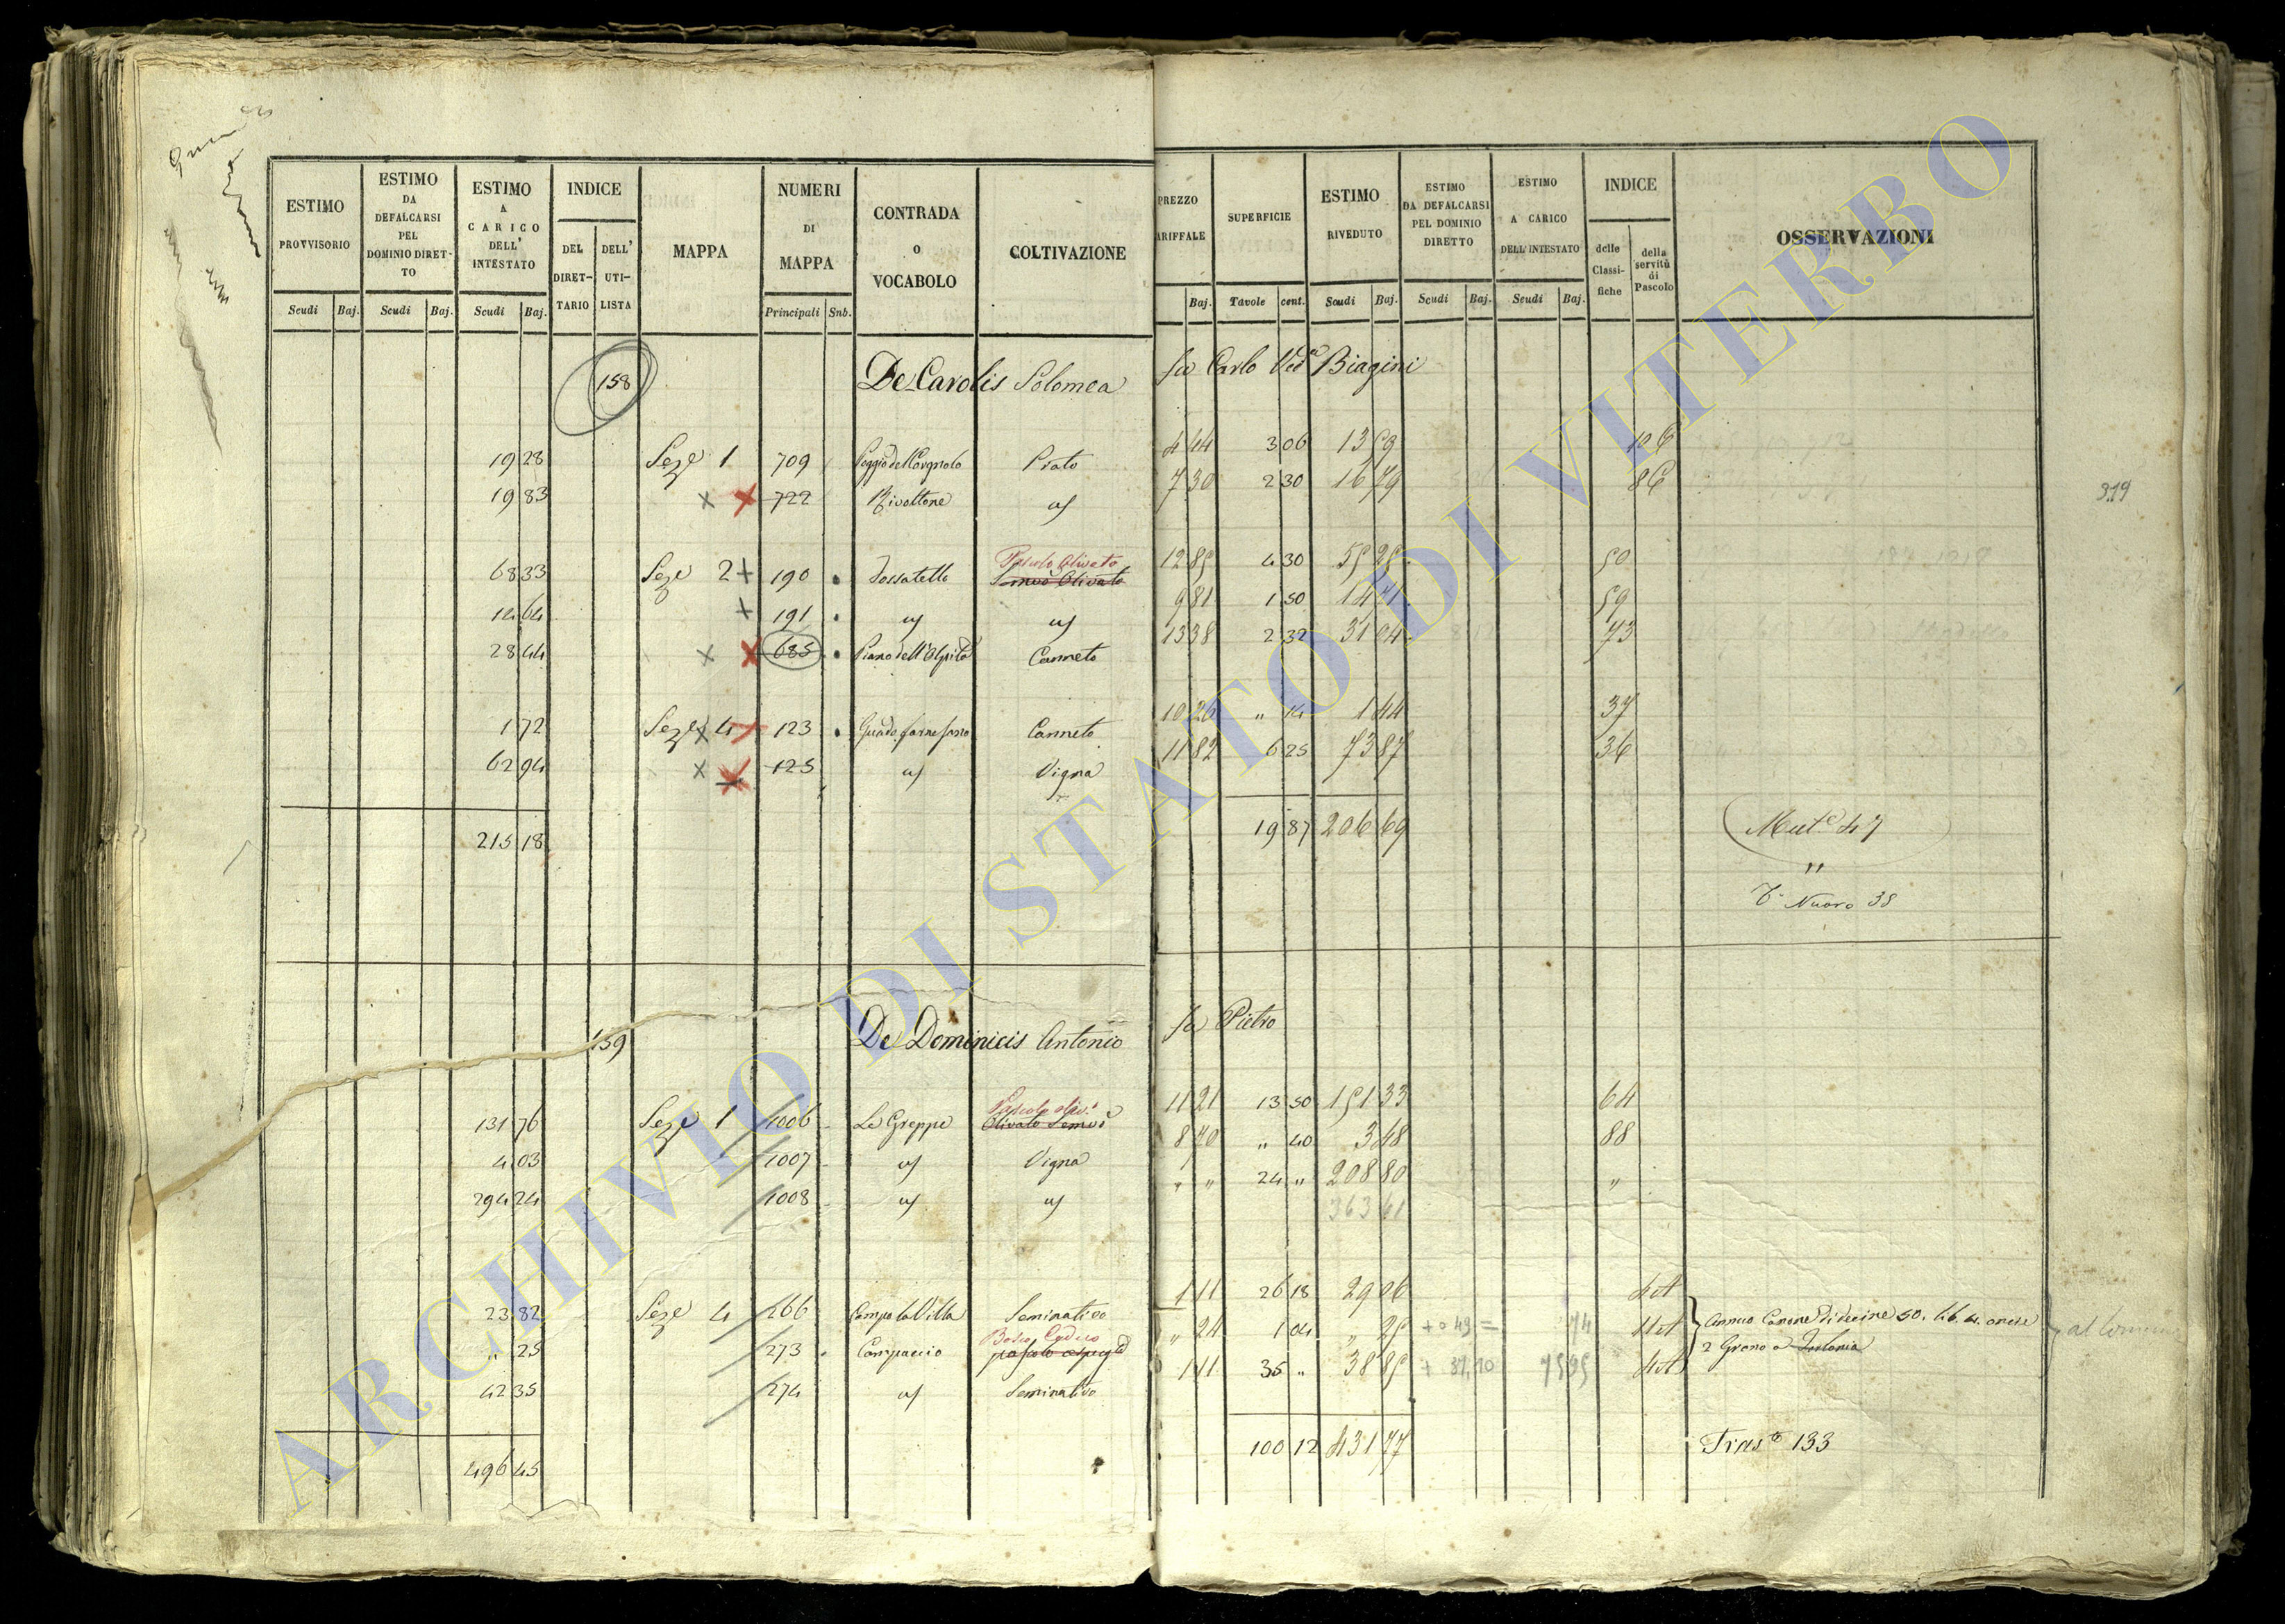 ESTIMO PROVVISORIO
Scudi Baj.
ESTIMO DA DEFALCARSI PEL DOMINIO DIRET- TO
Scudi Baj.
ESTIMO A CARICO DELL' INTESTATO
Scudi Baj.
INDICE
DEL DIRET- TARIO
DELL' UTI- LISTA
MAPPA
NUMERI DI MAPPA
Principali Snb.
CONTRADA O VOCABOLO
COLTIVAZIONE
PREZZO ARIFFALE
Baj.
SUPERFICIE
Tavole cent.
ESTIMO RIVEDUTO
Scudi Baj.
ESTIMO DA DEFALCARSI PEL DOMINIO DIRETTO
Scudi Baj.
ESTIMO A CARICO DELL'INTESTATO
Scudi Baj.
INDICE
delle Classi- fiche
della servitù di Pascolo
OSSERVAZIONI
158 De Carolis Solomea fu Carlo Ved.a Biagini
19 28 Seze 1 709 Prato 4 44 3 06 13 59 10 6
19 83 722 Rivoltone 7 30 2 30 16 79 86
319
Pascolo Olivato
68 33 Seze 2 190 Fossatello Semvo Olivato 12 85 4 30 55 25 50
14 64 191 9 81 1 50 14 71 59
28 44 685 Canneto 13 38 2 32 31 04 73
1 72 Seze 4 123 Canneto 10 26 " 14 1 44 37
62 94 125 Vigna 11 82 6 25 73 87 36
215 18 19 87 206 69
Mut.e 47
"
Nuovo 38
159 De Dominicis Antonio fu Pietro
Pascolo oliv.
131 76 Seze 1 1006 Le Greppe Olivato 11 21 13 50 151 33 64
4 03 1007 Vigna 8 70 " 40 3 48 88
294 24 1008 " " 24 " 208 80 "
363 61
23 82 Seze 4 266 Campo la Villa Seminativo 1 11 26 18 29 06
Bosco Ceduo
" 25 273 Campaccio " 24 1 04 " 25 + 0 49 = 74
42 35 274 Seminativo 1 11 35 " 38 85 + 37,10 75 95
Annuo Canone di
2 Grano a
496 45 100 12 431 77
Tras.to 133
ARCHIVIO DI STATO DI VITERBO